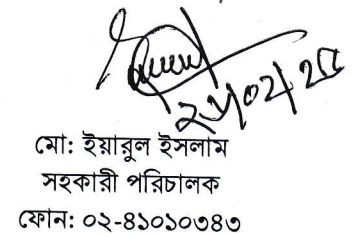 ২৬/০২/২৫
মো: ইয়ারুল ইসলাম
সহকারী পরিচালক
ফোন: ০২-৪১০১০৩৪৩